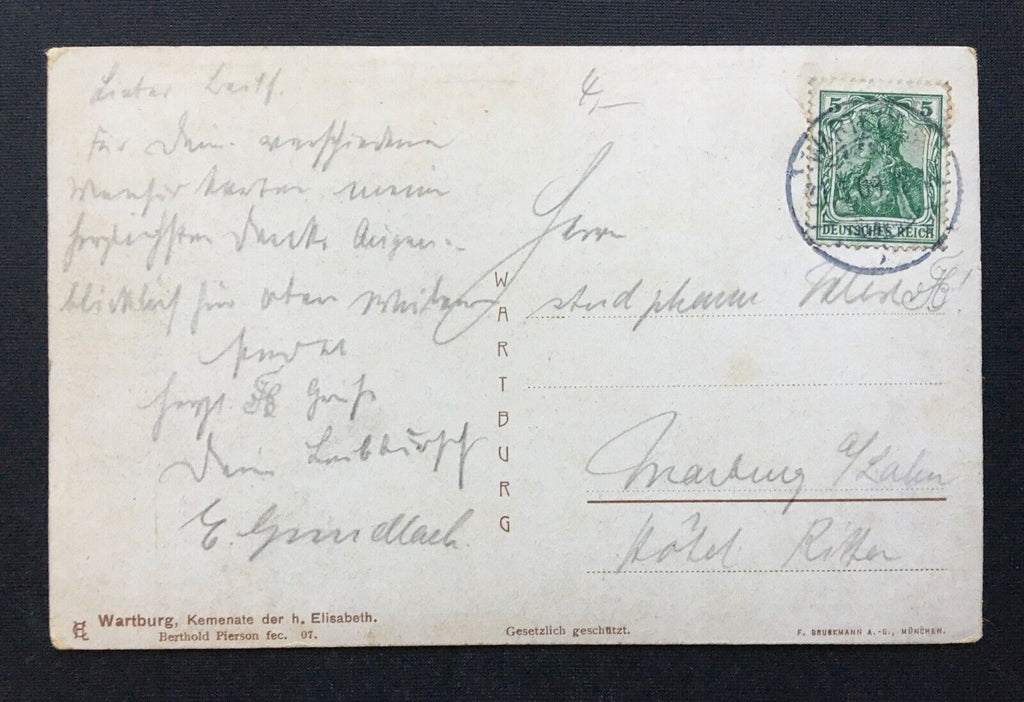 Lieber Leibf.
4,—
Für Deine verschiedenen
Karten meinen
herzlichsten Dank. Augen-
blicklich hier oben
sendet
herzl. Gruß
Dein Leibbursch
E. Gundlach.
Herrn
stud pharm
Marburg a/Lahn
Hôtel Ritter
WARTBURG
5 5
DEUTSCHES REICH
Wartburg, Kemenate der h. Elisabeth.
Berthold Pierson fec. 07.
Gesetzlich geschützt.
F. BRUCKMANN A.-G., MÜNCHEN.